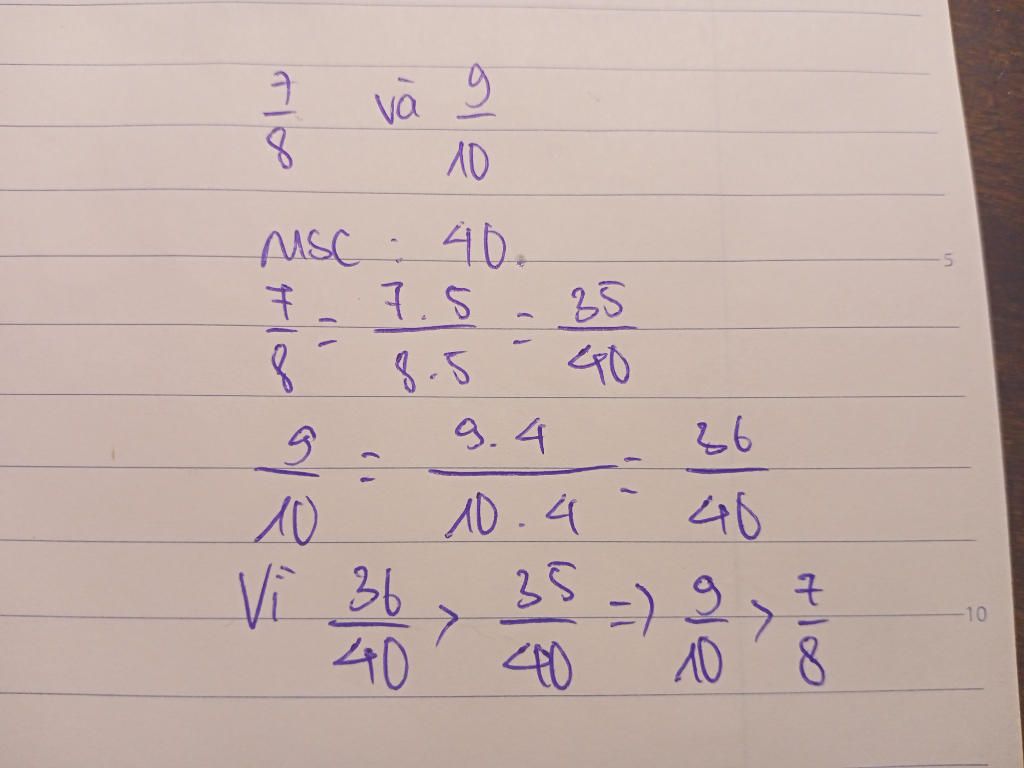 7/8 và 9/10
MSC : 40.
7/8 = 7.5/8.5 = 35/40
9/10 = 9.4/10.4 = 36/40
Vì 36/40 > 35/40 => 9/10 > 7/8
5
10